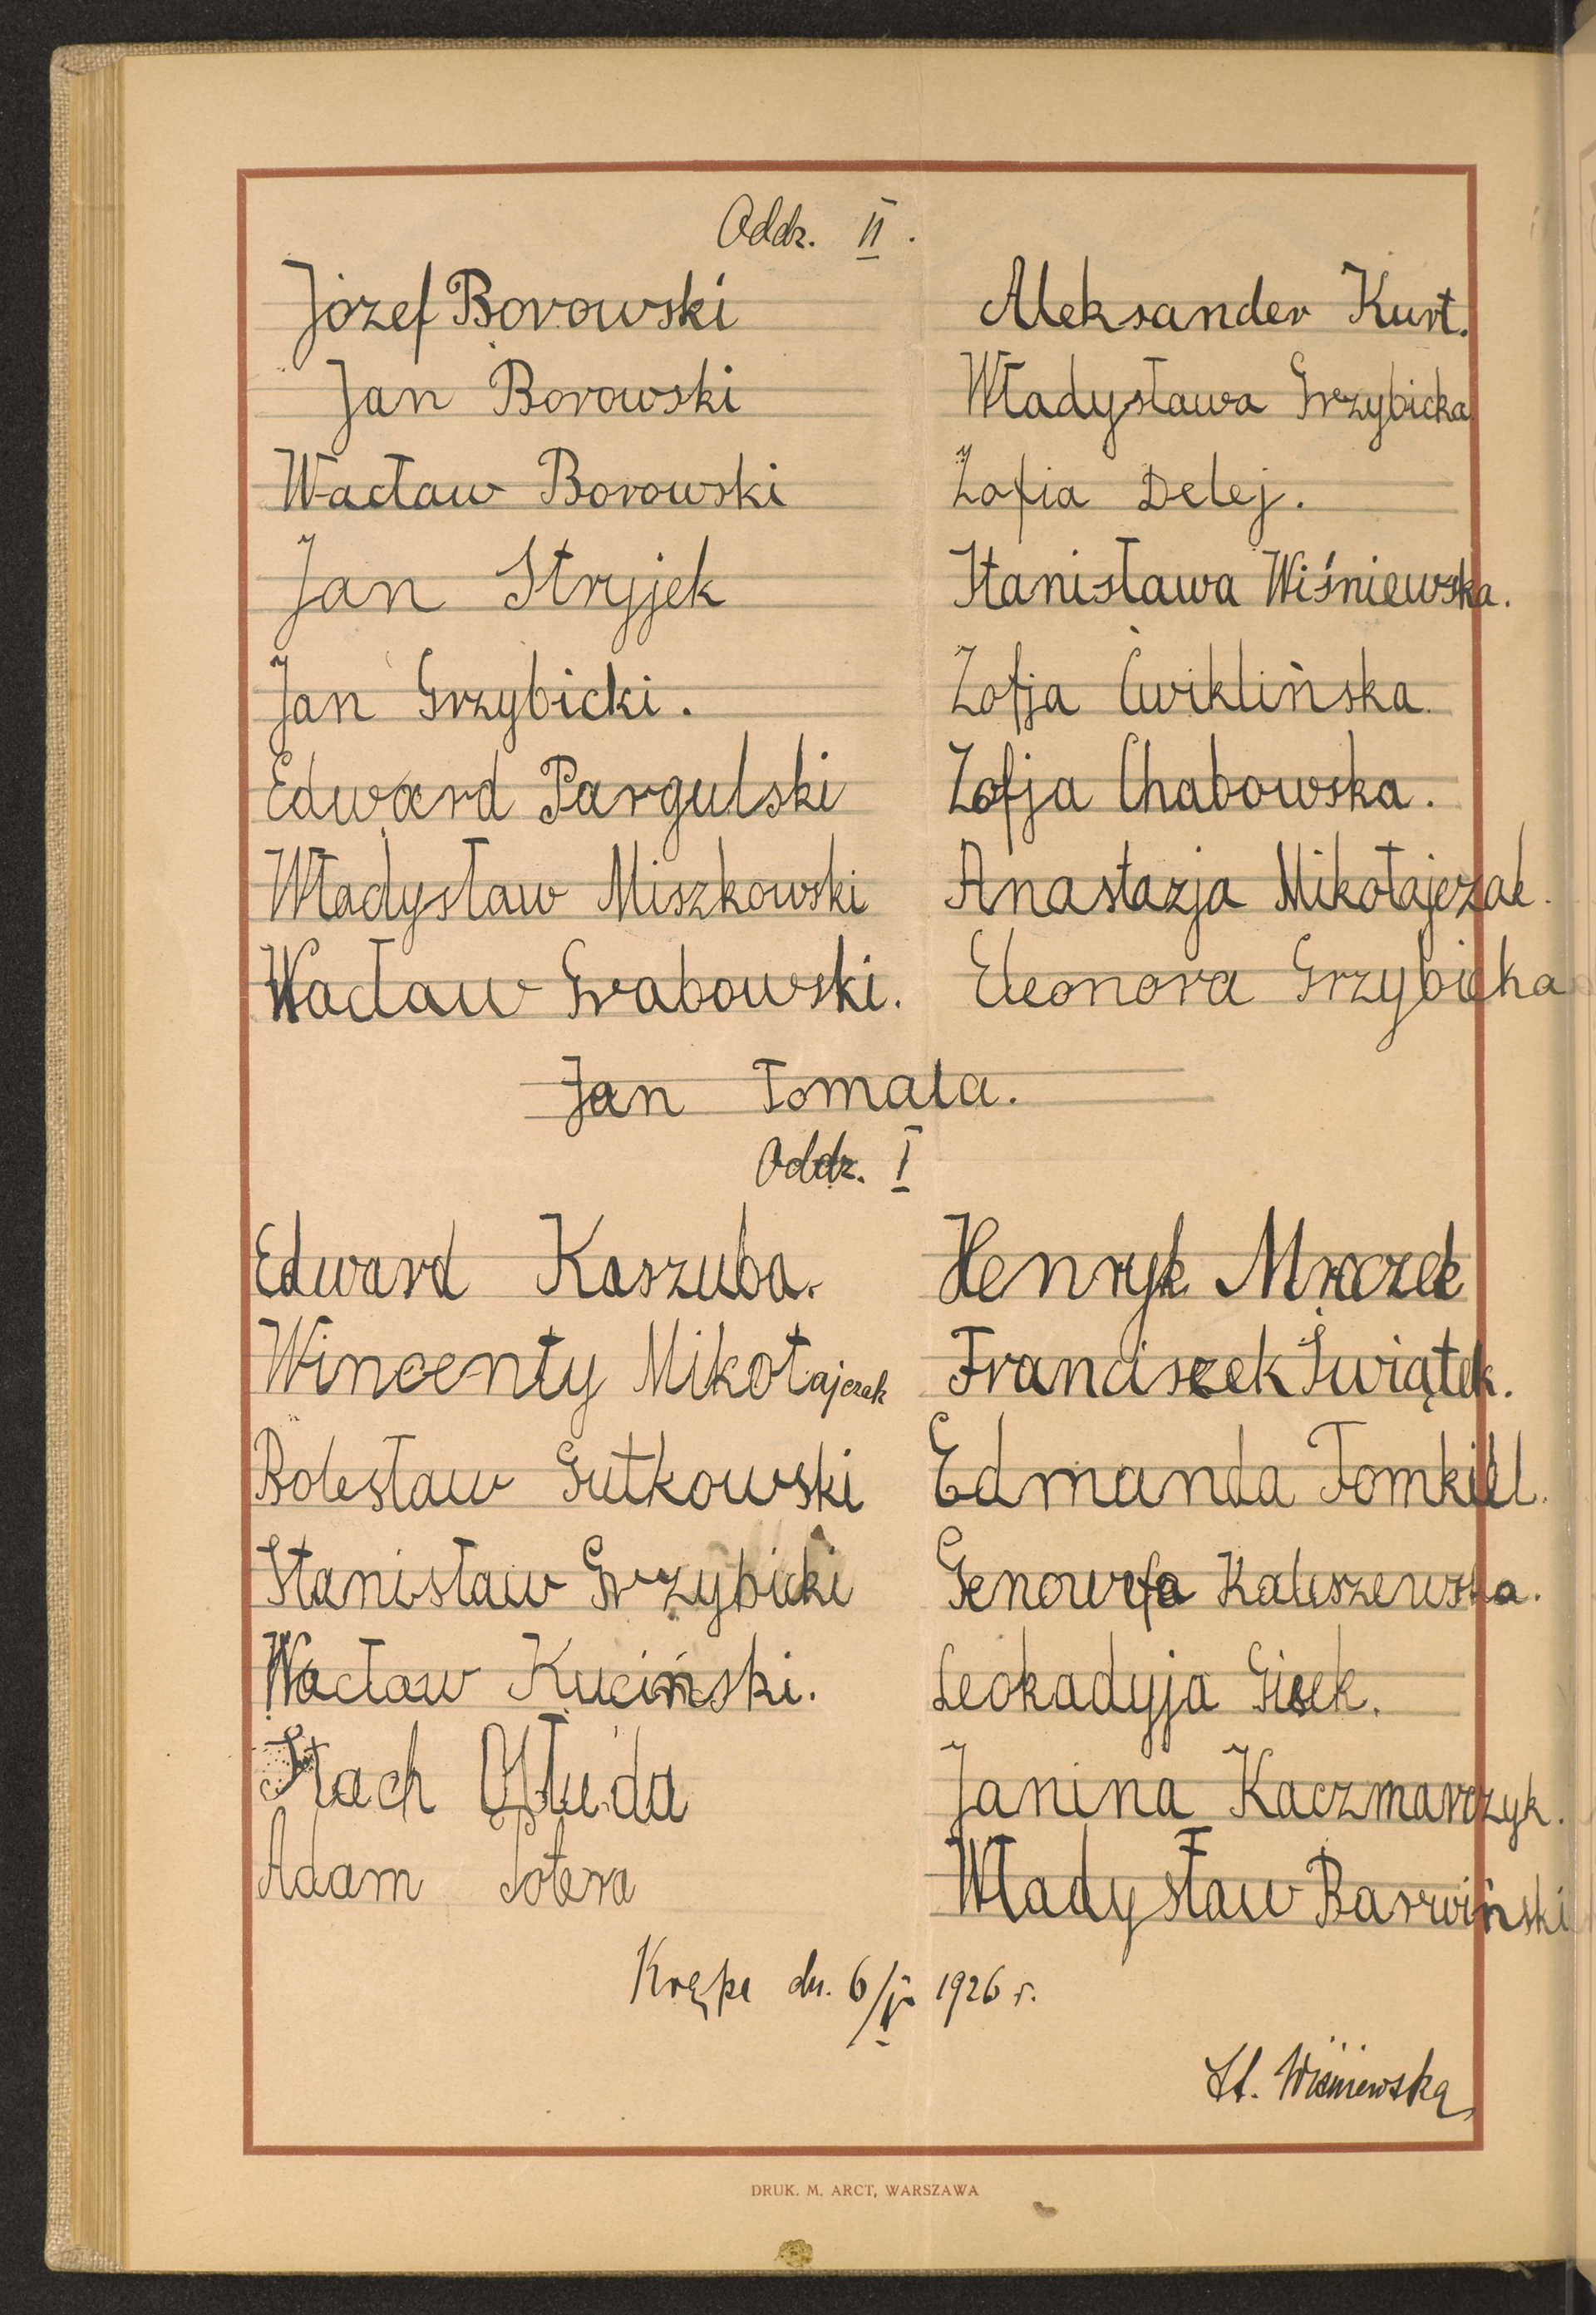 Oddz. II.
Józef Borowski
Jan Borowski
Wacław Borowski
Jan Stryjek
Jan Grzybicki.
Edward Pargulski
Władysław Miszkowski
Wacław Grabowski.
Aleksander Kurt.
Władysława Grzybicka
Zofia Delej.
Stanisława Wiśniewska.
Zofja Ćwiklińska.
Zofja Chabowska.
Anastazja Mikołajczak.
Eleonora Grzybicka
Jan Tomala.
Oddz. I
Edward Kaszuba.
Wincenty Mikołajczak
Bolesław Gutkowski
Stanisław Grzybicki
Wacław Kuciński.
Stach
Adam Sotera
Henryk Mroczek
Franciszek Świątek.
Edmanda Tomkiel.
Genowefa Kaliszewska.
Leokadyja Gisek.
Janina Kaczmarczyk.
Władysław Barwiński
Krępa dn. 6/V 1926 r.
St. Wiśniewska
DRUK. M. ARCT, WARSZAWA